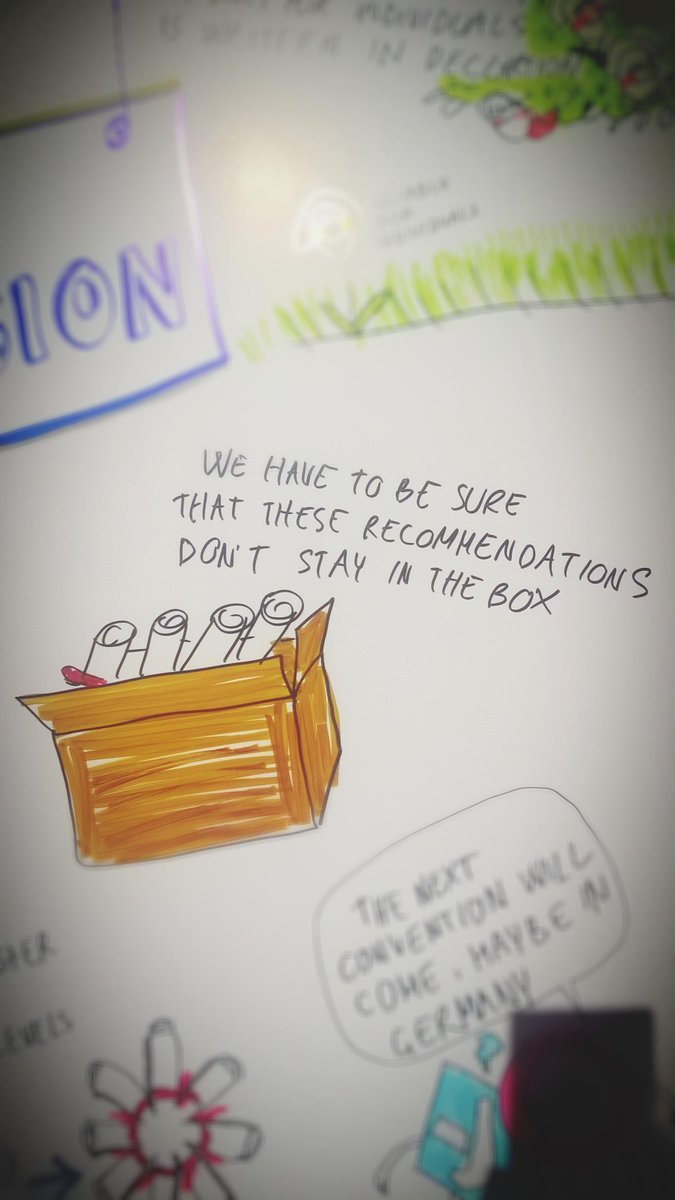 INDIVIDUALS
IS WRITTEN IN
SION
WE HAVE TO BE SURE
THAT THESE RECOMMENDATIONS
DON'T STAY IN THE BOX
THE NEXT
CONVENTION WILL
COME. MAYBE IN
GERMANY
LEVELS